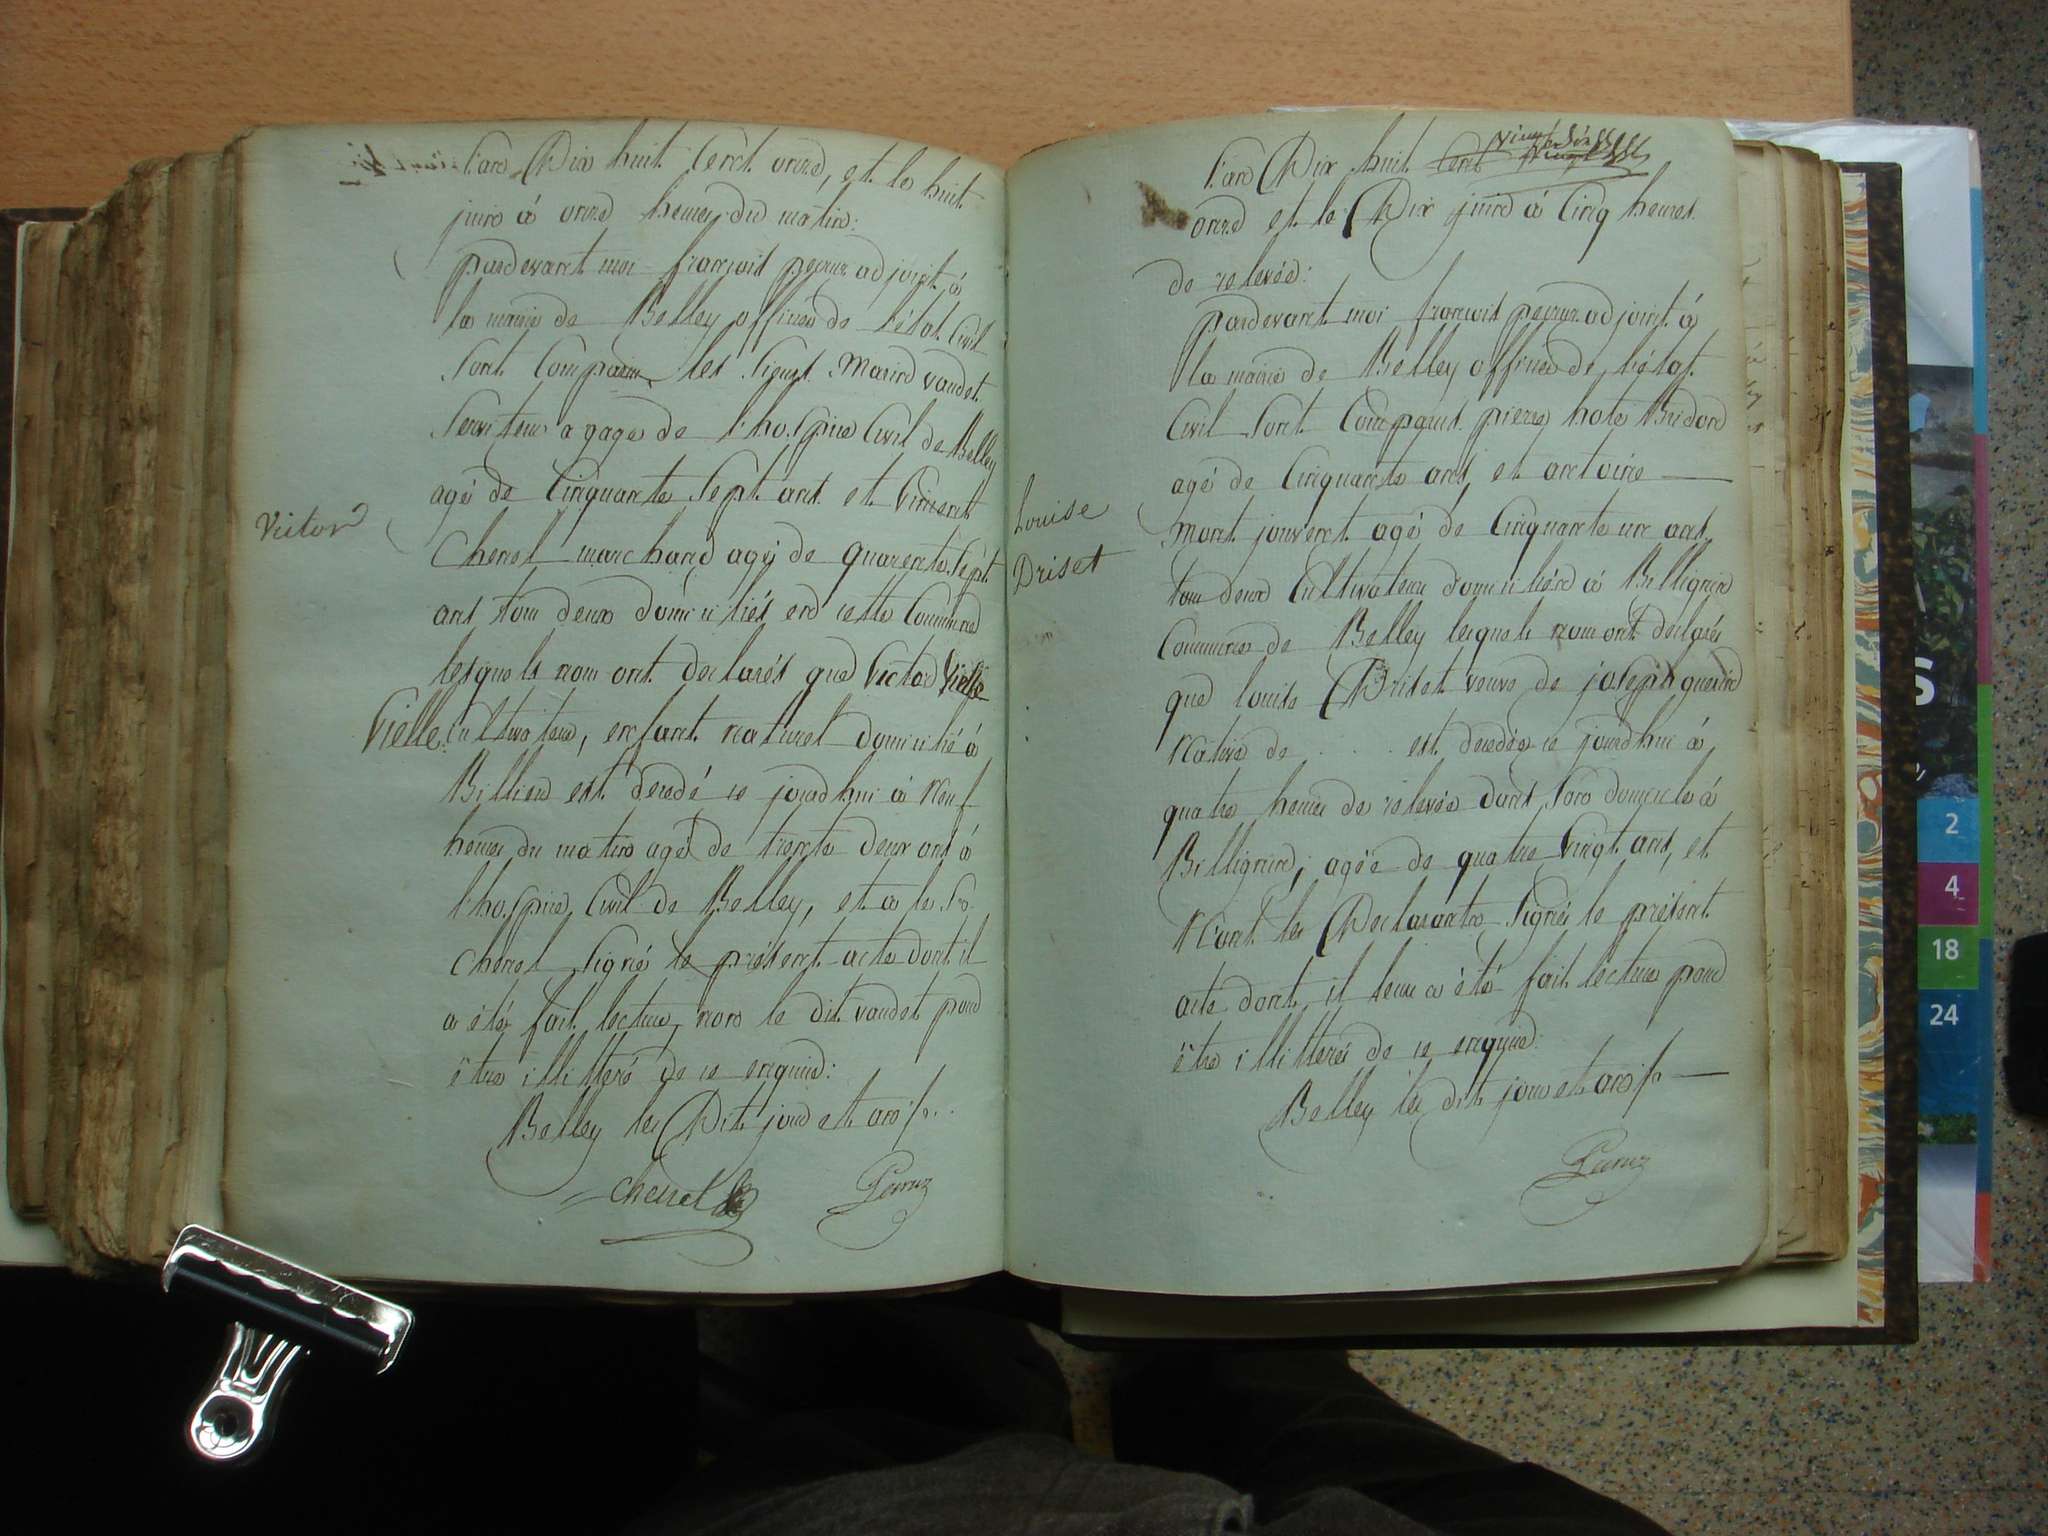 L'an Dix huit Cent onze, et le huit
juin à onze heures du matin:
pardevant moi françois peyruz adjoint à
la mairie de Belley officier de l'état Civil
Sont Comparu les Sieurs Marin vaudet
Serviteur a gage de l'hospice Civil de Belley
agé de Cinquante Sept ans et Vincent
Chenel marchand agé de quarente Sept
ans tous deux domiciliés en cette Commune
lesquels nous ont declarés que Victor Vielle
Vielle Cultivateur, enfant naturel domicilié à
Billieu est decedé ce jourdhui à Neuf
heures du matin agé de trente deux ans à
l'hospice Civil de Belley, et a le Sr.
Chenel Signé le présent acte dont il
a été fait lecture, non le dit vaudet pour
être illitteré de ce enquis:
Belley les Dit jour et an ./.
Chenel Peyruz
Victor
L'an Dix huit Cent
onze et le Dix juin à Cinq heures
de relevée:
pardevant moi françois peyruz adjoint à
la mairie de Belley officier de l'état
Civil Sont Comparus pierre hote Bridon
agé de Cinquante ans, et antoine
Mont jouvent agé de Cinquante un ans
tous deux Cultivateurs domiciliés à Billignin
Commune de Belley lesquels nous ont déclarés
que louise Briset veuve de joseph guerin
Native de . . . . est decedée ce jourdhui à
quatre heures de relevée dans Son domicile à
Billignin, agée de quatre Vingt ans, et
N'ont les Declarants Signés le présent
acte dont il leur a été fait lecture pour
être illitterés de ce enquis:
Belley les dit jour et an ./.
Peyruz
Louise
Driset
2
4
18
24